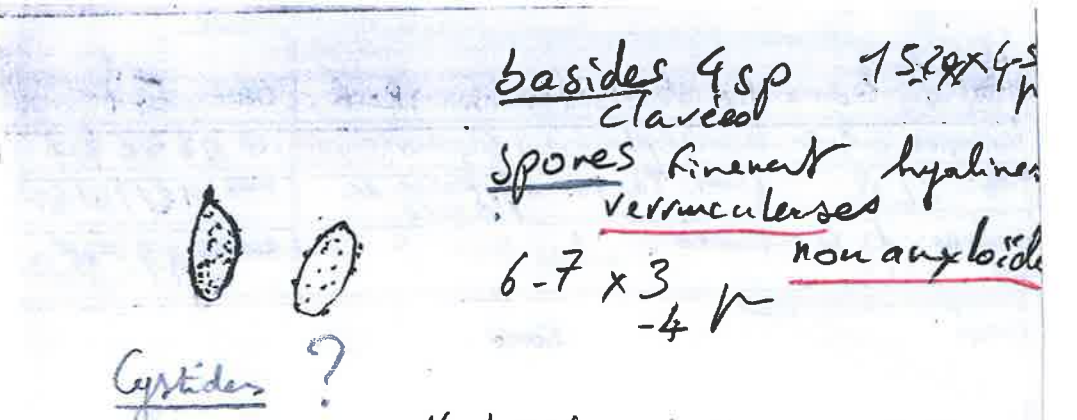 basides 4sp 15-20x4-5 µ
clavées
spores finement hyalines
verruculeuses
non amyloïde
6-7 x 3
-4 µ
Cystides ?